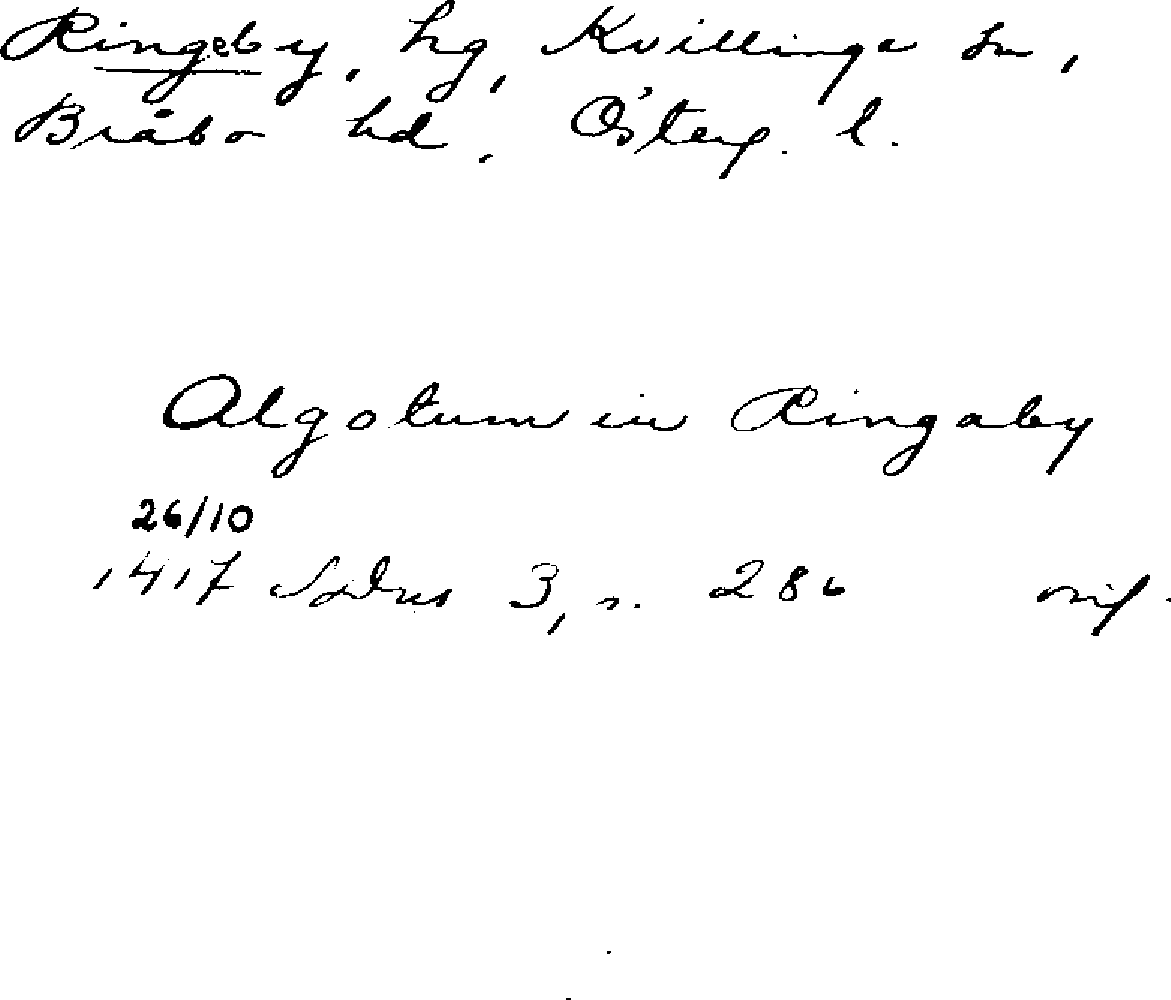 Ringeby, hg, Kvillinge sn,
Bråbo hd, Österg. l.
Algotum in Ringaby
26/10
1417 SDns 3, s. 286 orig.